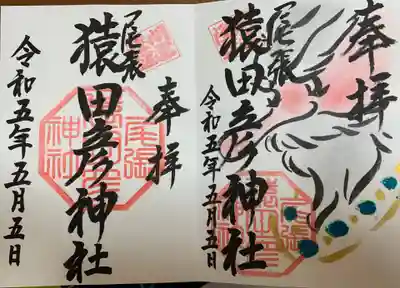 奉拝
尾張
猿田彦神社
令和五年五月五日
奉拝
尾張
猿田彦神社
令和五年五月五日